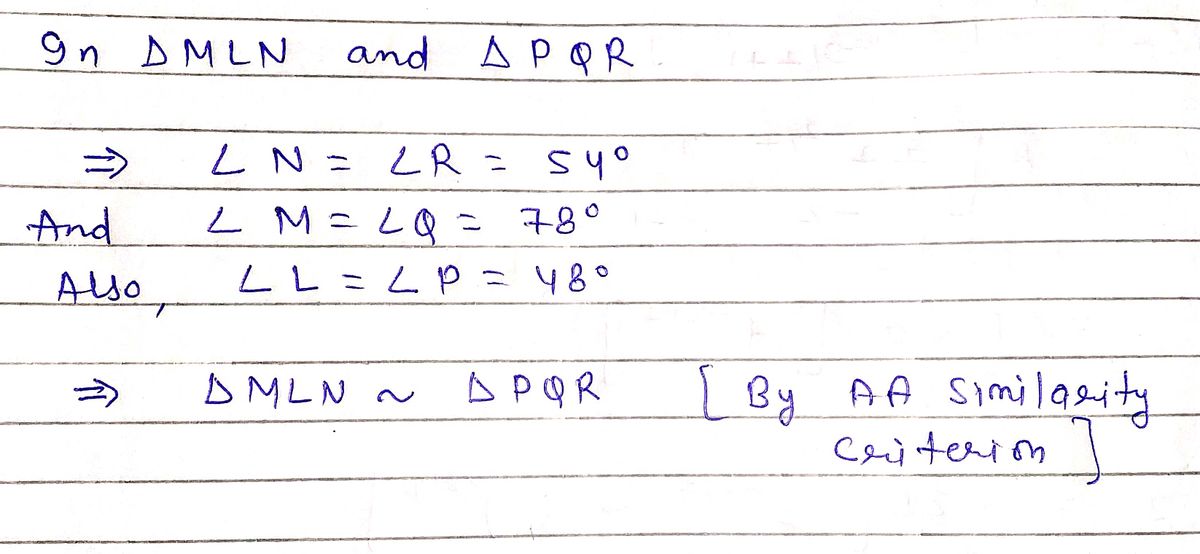 In ΔMLN and ΔPQR
⇒ ∠N = ∠R = 54°
And ∠M = ∠Q = 78°
Also, ∠L = ∠P = 48°
⇒ ΔMLN ~ ΔPQR [By AA Similarity
Criterion]